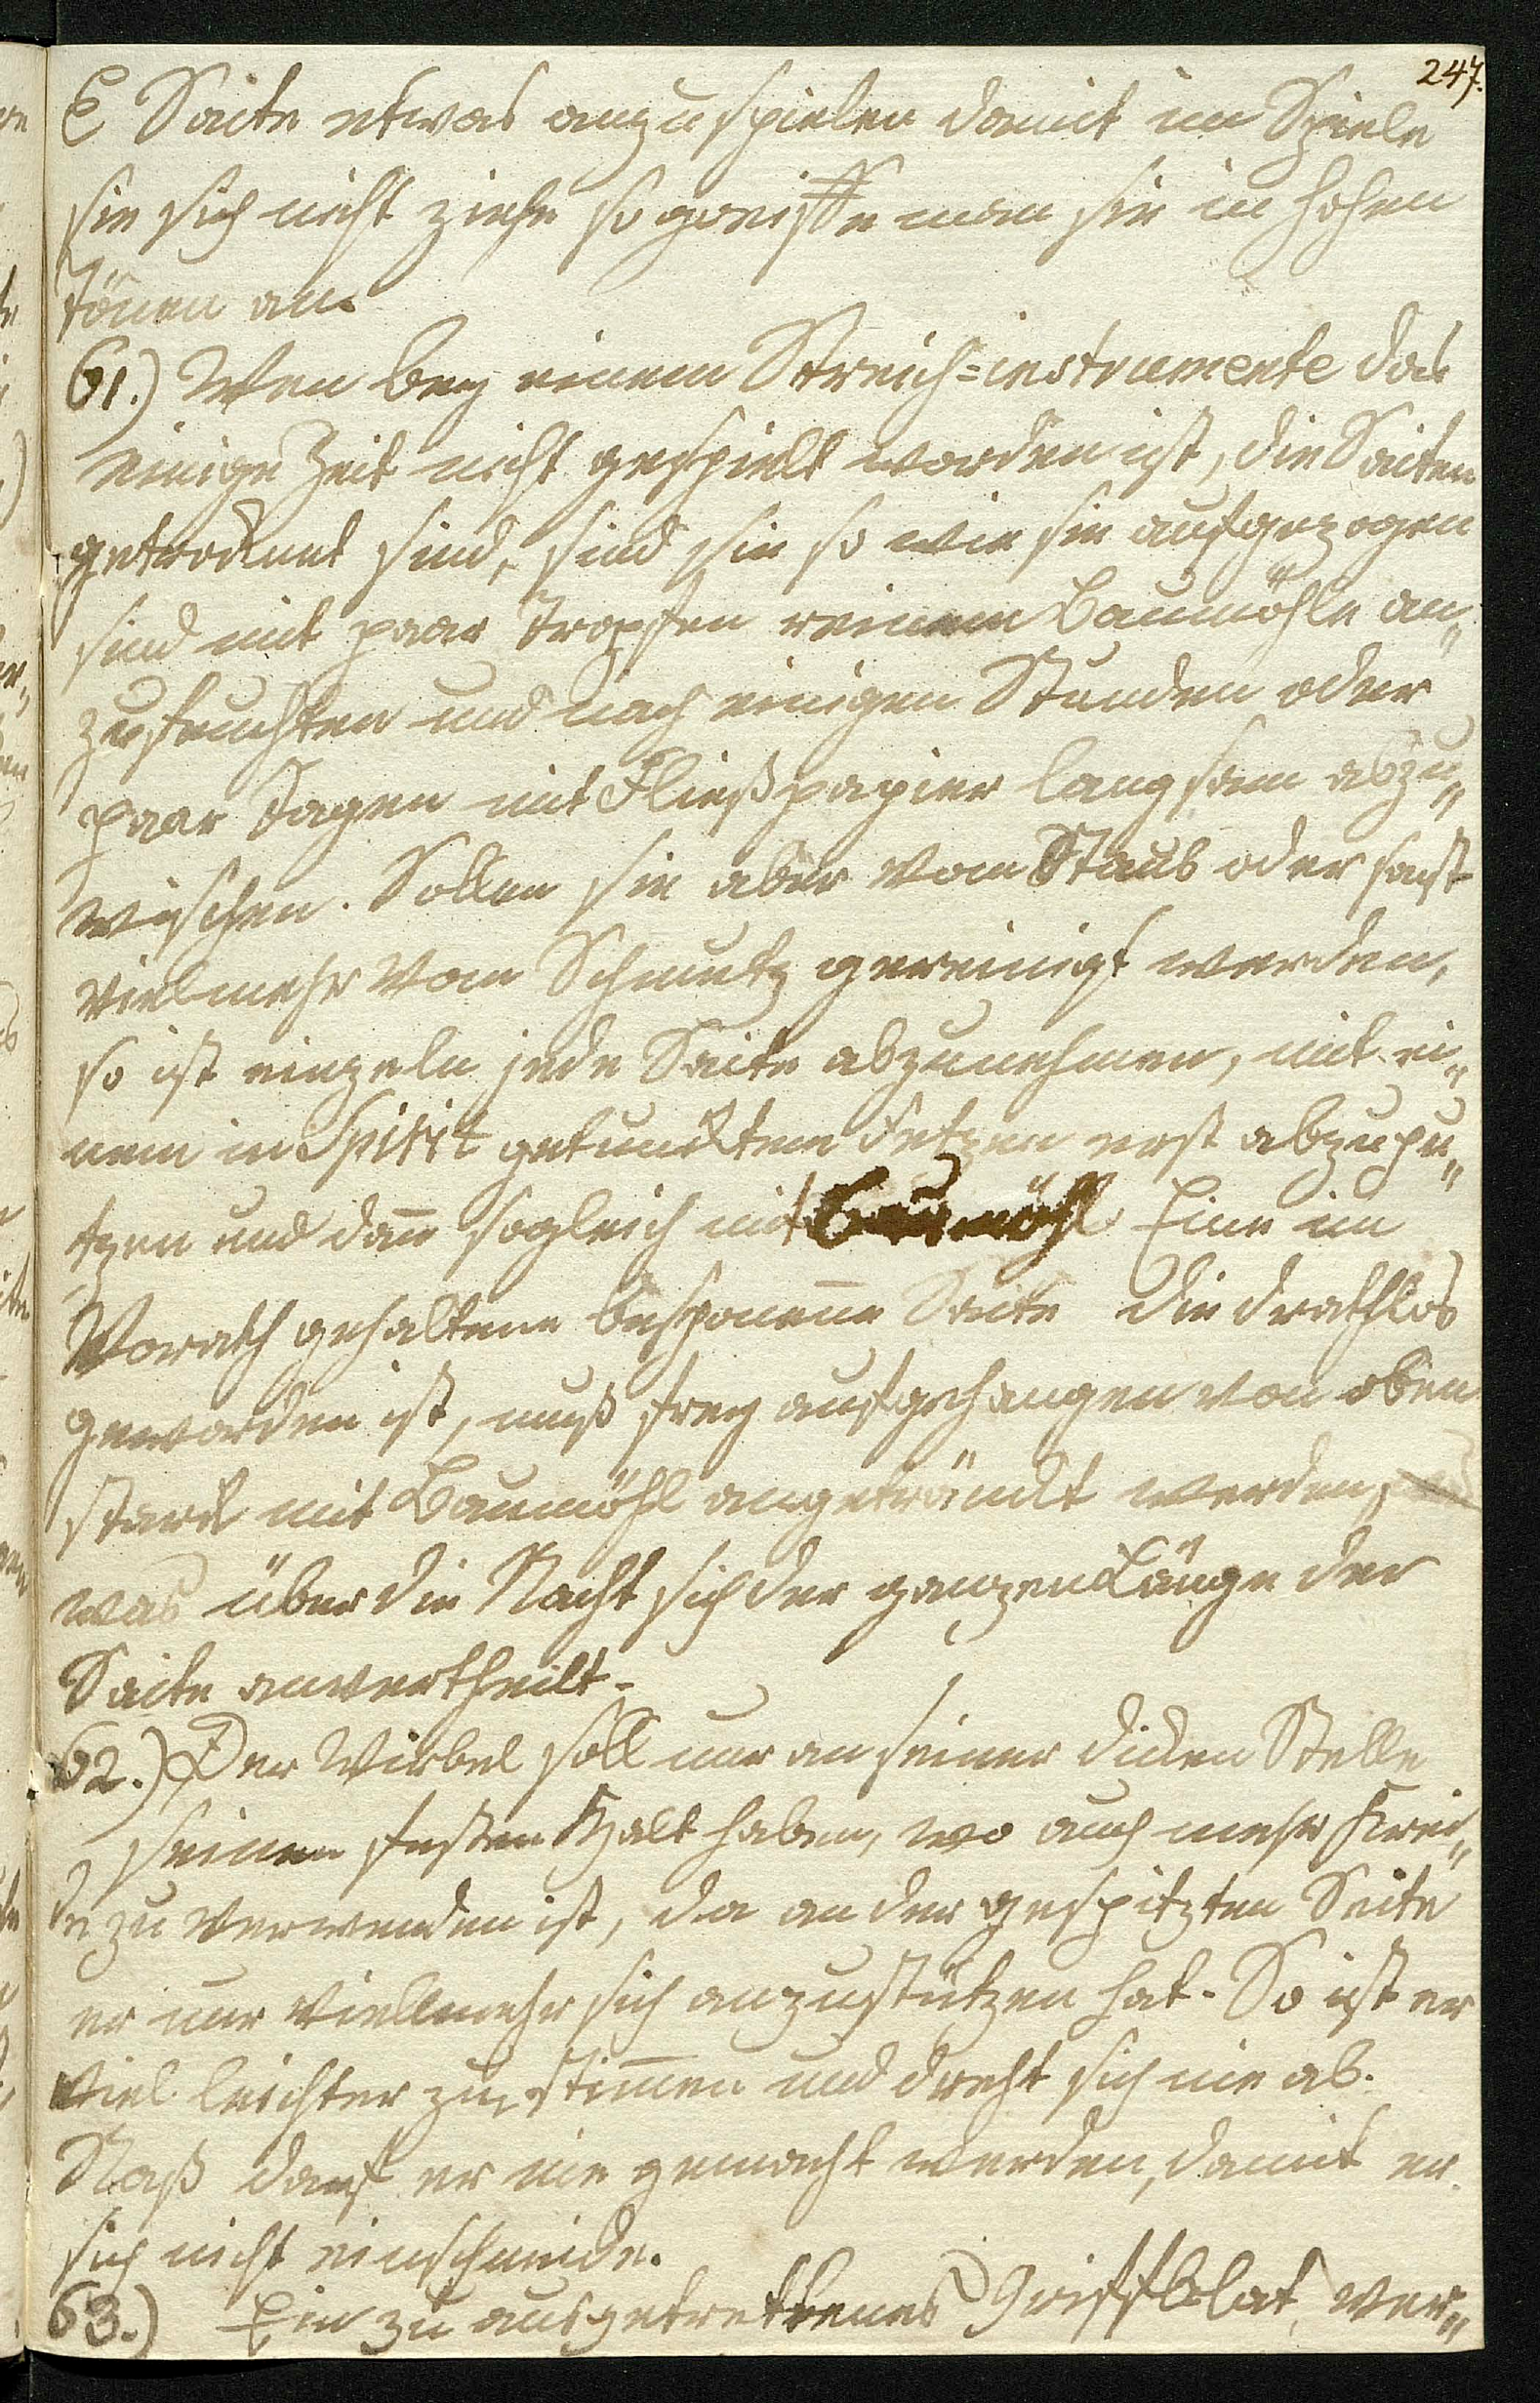 247.
E Saite etwas anzuspielen damit im Spiele
sie sich nicht ziehe so greiffe man sie in hohen
Tönen an.
61.) Wen bey einem Streich=instrumente das
einige Zeit nicht gespielt worden ist, die Saiten
getrocknet sind, sind sie so wie sie aufgezogen
sind mit paar Tropfen reinem Baumöhle an„
zufeuchten und nach einigen Stunden oder
paar Tagen mit Fließpapier langsam abzu„
wischen. Sollen sie aber vom Staub oder sonst
vielmehr vom Schmutz gereinigt werden,
so ist einzeln jede Saite abzunehmen, mit ei„
nem in Spirit getunckten Fetzen erst abzupu„
tzen und dan̄ sogleich mit Baumöhl. Eine im
Vorath gehaltene besponen̄e Saite die drathlos
geworden ist, muß frey aufgehangen von oben
starck mit Baumöhl angetränckt werden,
was über die Nacht sich der ganzen Länge der
Saite anvertheilt.
62.) Der Wirbel soll nur an seiner dicken Stelle
seinen festen Halt haben, wo auch mehr Krei„
de zu verwenden ist, da an der gespitzten Seite
er nur viellmehr sich anzustützen hat. So ist er
viel leichter zu stim̄en und dreht sich nie ab.
Naß darf er nie gemacht werden, damit er
sich nicht einschneide.
63.) Ein zu ausgetrettenes Griffblat, ver„